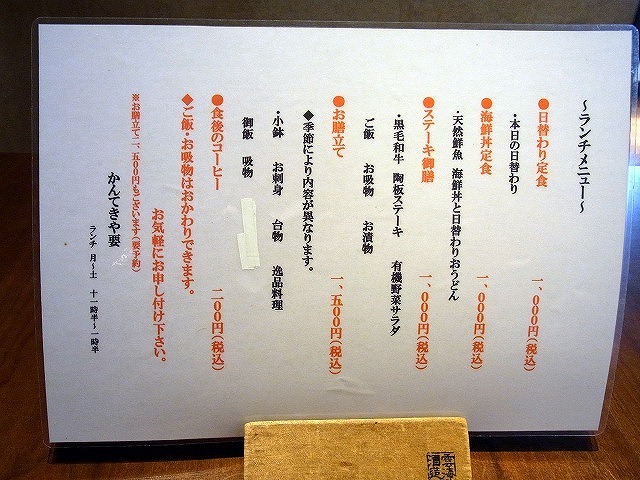 ～ランチメニュー～
●日替わり定食 一、000円（税込）
・本日の日替わり
●海鮮丼定食 一、000円（税込）
・天然鮮魚 海鮮丼と日替わりおうどん
●ステーキ御膳 一、000円（税込）
・黒毛和牛 陶板ステーキ 有機野菜サラダ
ご飯 お吸物 お漬物
●お膳立て 一、五00円（税込）
◆季節により内容が異なります。
・小鉢 お刺身 台物 逸品料理
御飯 吸物
●食後のコーヒー 二00円（税込）
◆ご飯・お吸物はおかわりできます。
お気軽にお申し付け下さい。
※お膳立て二、五00円もございます（要予約）
かんてきや要
ランチ 月～土 十一時半～一時半